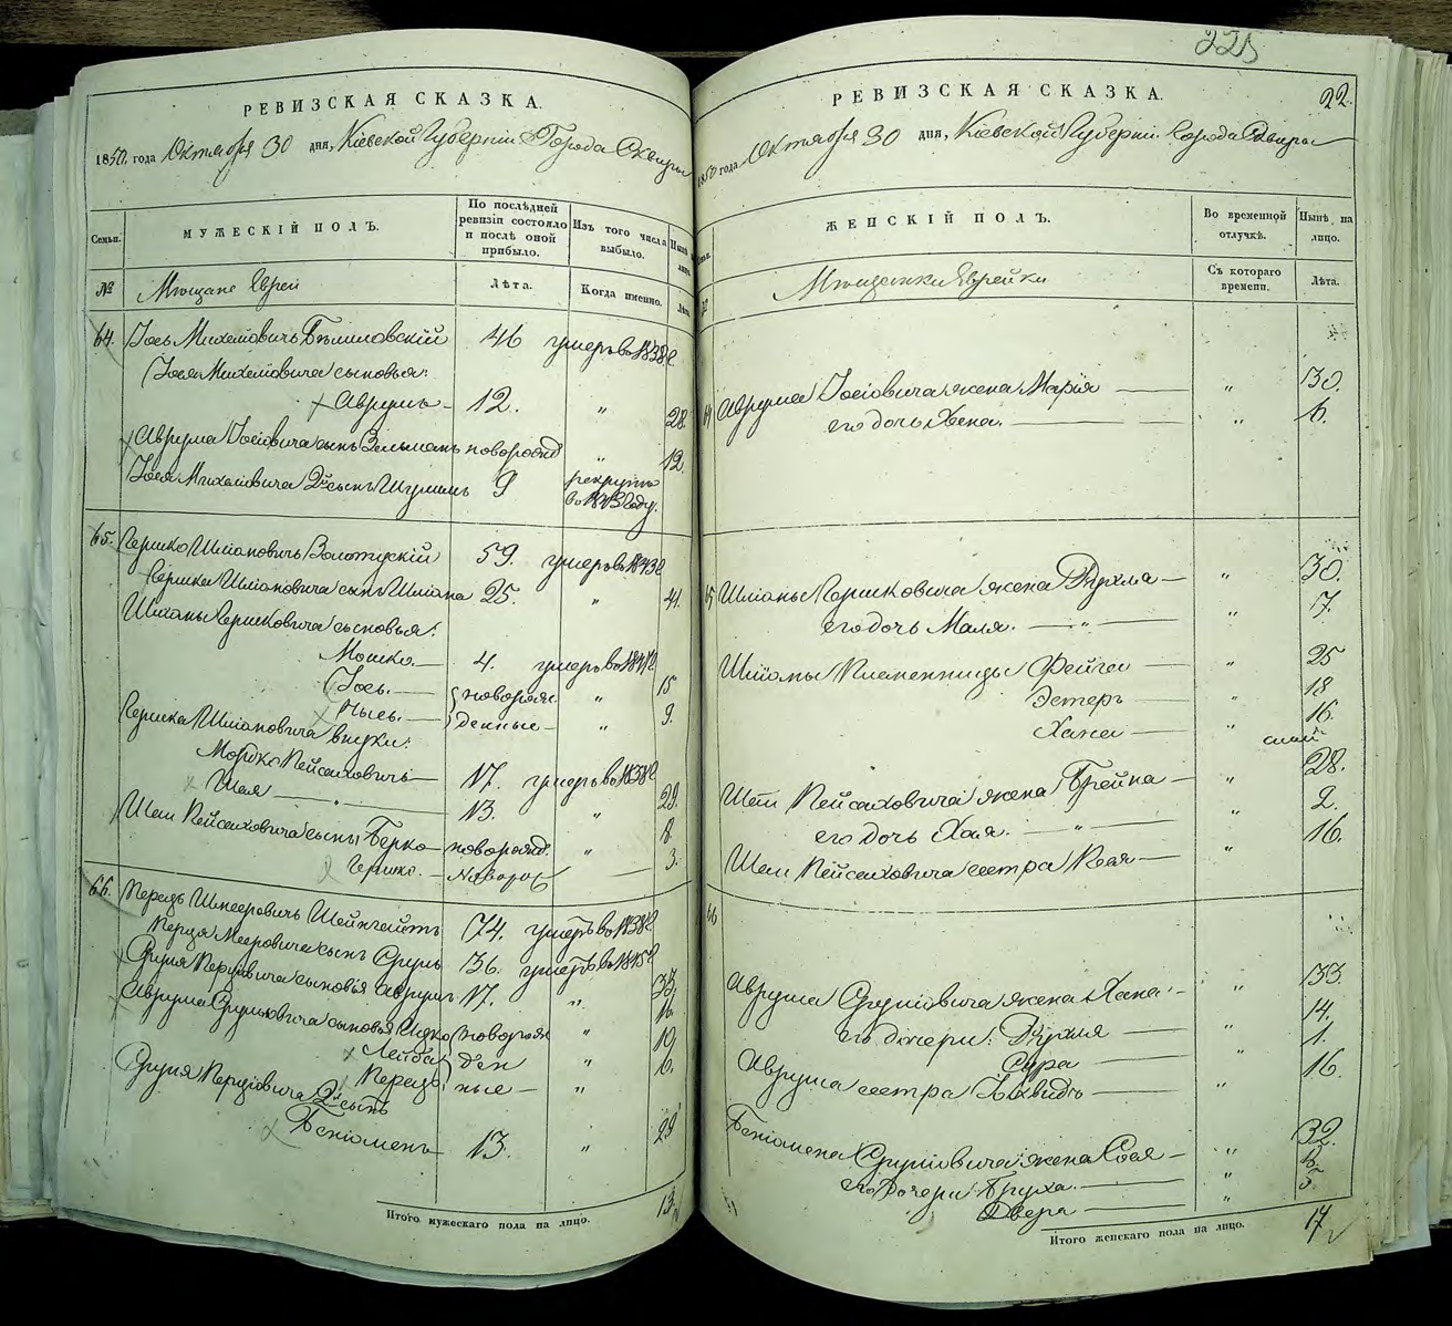 225
РЕВИЗСКАЯ СКАЗКА.
1850 года Октября 30 дня, Кіевской Губерніи Города Сквиры
Семьи.
МУЖЕСКІЙ ПОЛЪ.
По послѣдней ревизіи состояло и послѣ оной прибыло.
Изъ того числа выбыло.
Нынѣ на лицо.
№
Мѣщане Евреи
Лѣта.
Когда именно.
Лѣта.
64. Іось Михелiовичъ 46 умеръ во 1838 г
Іося Михелiовича сыновья:
Аврумъ 12. " 28.
Аврума Іосіовича сынъ Зельманъ новорожд " 12.
Іося Михелiовича 2й сынъ 9 рекрутъ
во 1843 году.
65. Гершко Шліомовичъ 59. умеръ во 1843 г
Гершка Шліомовича сынъ Шліома 25. " 41.
Шліомы Гершковича сыновья:
Мошко 4. умеръ во 1841 г
Іось. новорож " 15
денные " 9.
Гершка Шліомовича внуки:
Мордко Пейсаховичъ 17. умеръ во 1838 г
Шая 13. " 29.
Шаи Пейсаховича сыны Берко новорожд. " 8.
Гершко. Новорож 3.
66. Перецъ 74. умеръ во 1838 г
Перца сынъ Сруль 36. умеръ во 1845 г
Сруля Перцiовича сыновья Аврумъ 17. " 33.
Аврума Срулiовича сыновья Ицко новорож " 16.
Лейба ден " 10.
Перецъ ные " 6.
Сруля Перцiовича 2й сынъ
Бенiоменъ 13. " 29
Итого мужескаго пола на лицо. 13
РЕВИЗСКАЯ СКАЗКА.
22.
1850 года Октября 30 дня, Кіевской Губерніи Города Сквиры
ЖЕНСКІЙ ПОЛЪ.
Во временной отлучкѣ.
Нынѣ на лицо.
Мѣщанки Еврейки
Съ котораго времени.
Лѣта.
64 Аврума Іосіовича жена Марія " 30.
его дочь Хена. " 6.
65 Шліомы Гершковича жена Рухля " 30.
его дочь Маля. " 17.
Шліомы племенницы Фейга " 25
Эстеръ " 18
Хана " 16.
Шаи Пейсаховича жена Брейна " 28.
его дочь Хая. " 2.
Шаи Пейсаховича сестра " 16.
66
Аврума Срулiовича жена Хана " 33.
его дочери: Рухля " 14.
Сура " 1.
Аврума сестра " 16.
Бенiомена Срулiовича жена " 32.
его дочери: Бруха. "
Двера " 5.
Итого женскаго пола на лицо. 17